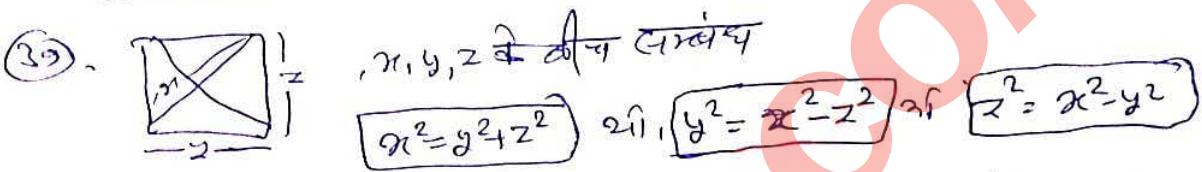 39. x z y , x, y, z के बीच सम्बंध
x² = y² + z² या, y² = x² - z² या z² = x² - y²